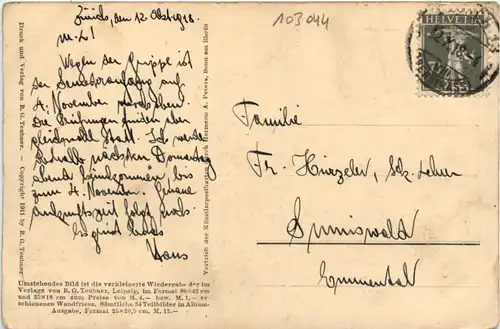 103044
HELVETIA
Zürich, den 12. Okt. 1918.
M. L.!
Wegen der Grippe ist
der Semesteranfang auf
4. November verschoben.
Die Prüfungen finden aber
gleichwohl statt. Ich werde
deshalb nächsten Donnerstag
Abend heimkommen, bis
zum 4. November. Genaue
Ankunftszeit folgt noch.
Es grüsst
Hans
Familie
Fr. Hirzeler, Sek. Lehrer
Sumiswald
Emmental
Druck und Verlag von B. G. Teubner. — Copyright 1911 by B. G. Teubner
Vertrieb der Künstlerpostkarten durch Hermann A. Peters, Bonn am Rhein
Umstehendes Bild ist die verkleinerte Wiedergabe der im
Verlage von B. G. Teubner, Leipzig, im Format
und 35×18 cm zum Preise von M. 4.— bzw. M. 1.— er-
schienenen Wandfriese. Sämtliche 34 Teilbilder in Album-
Ausgabe, Format 25×20,5 cm, M. 12.—